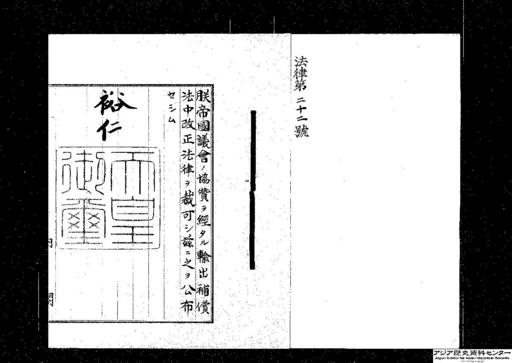 法律第二十二號
朕帝國議會ノ協贊ヲ經タル輸出補償
法中改正法律ヲ裁可シ茲ニ之ヲ公布
セシム
裕仁
天皇
御璽
アジア歴史資料センター
Japan Center for Asian Historical Records